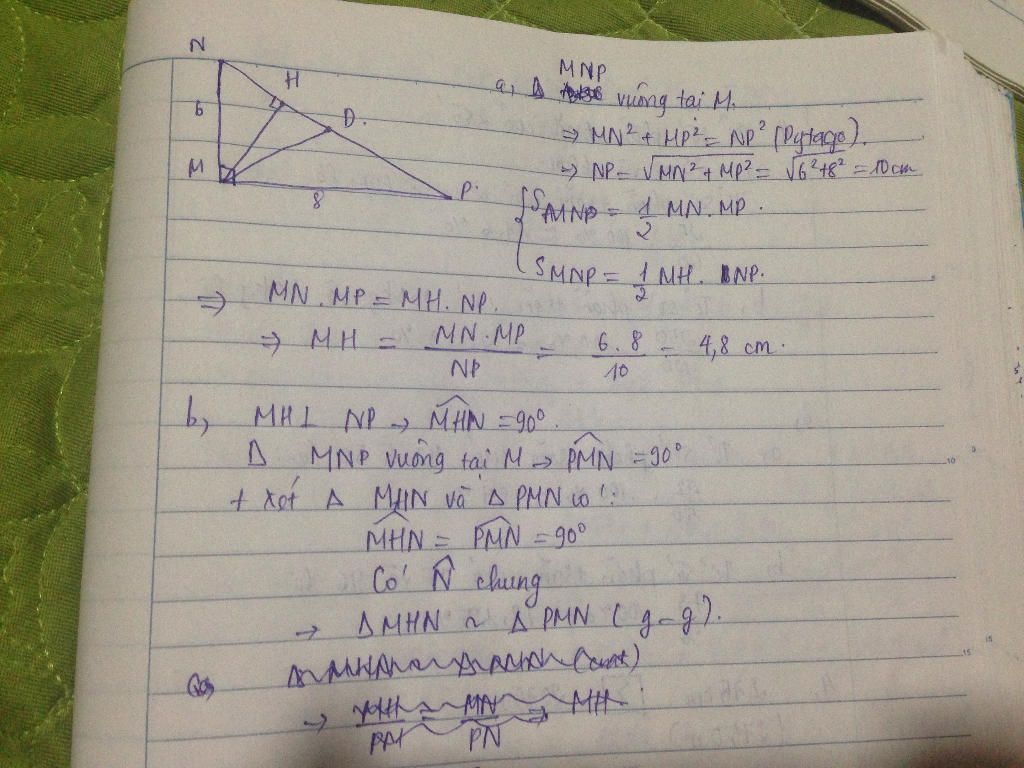 N
H
6
D.
M
8
P.
a, Δ MNP vuông tại M.
=> MN² + MP² = NP² (Pytago).
=> NP = √MN² + MP² = √6² + 8² = 10cm
S MNP = 1/2 MN. MP.
S MNP = 1/2 MH. NP.
=> MN. MP = MH. NP.
=> MH = MN. MP / NP = 6. 8 / 10 = 4,8 cm.
b, MH ⊥ NP → MHN = 90°.
Δ MNP vuông tại M → PMN = 90°
+ Xét Δ MHN và Δ PMN có:
MHN = PMN = 90°
Có N chung
→ Δ MHN ~ Δ PMN (g-g).
→ MH = MN => MH
PM PN
10
15
15